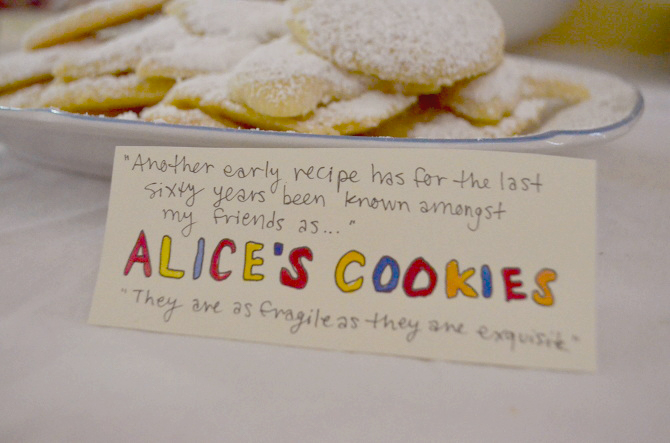 "Another early recipe has for the last
sixty years been known amongst
my friends as..."
ALICE'S COOKIES
"They are as fragile as they are exquisite"